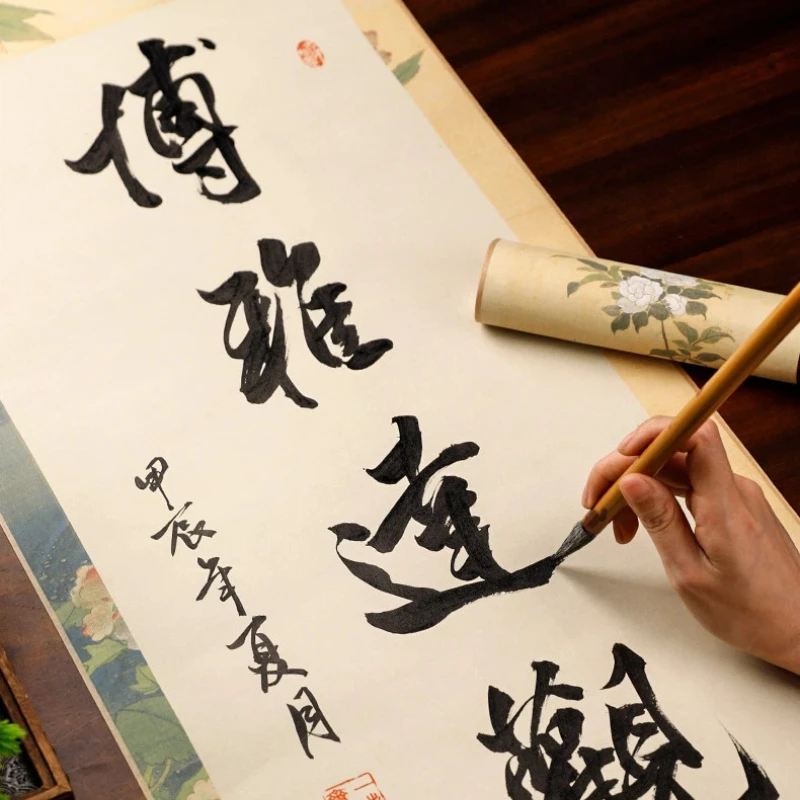 博雅達觀
甲辰年夏月